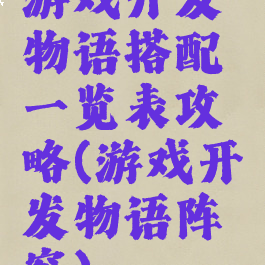 游戏开发
物语搭配
一览表攻
略(游戏开
发物语阵
容)